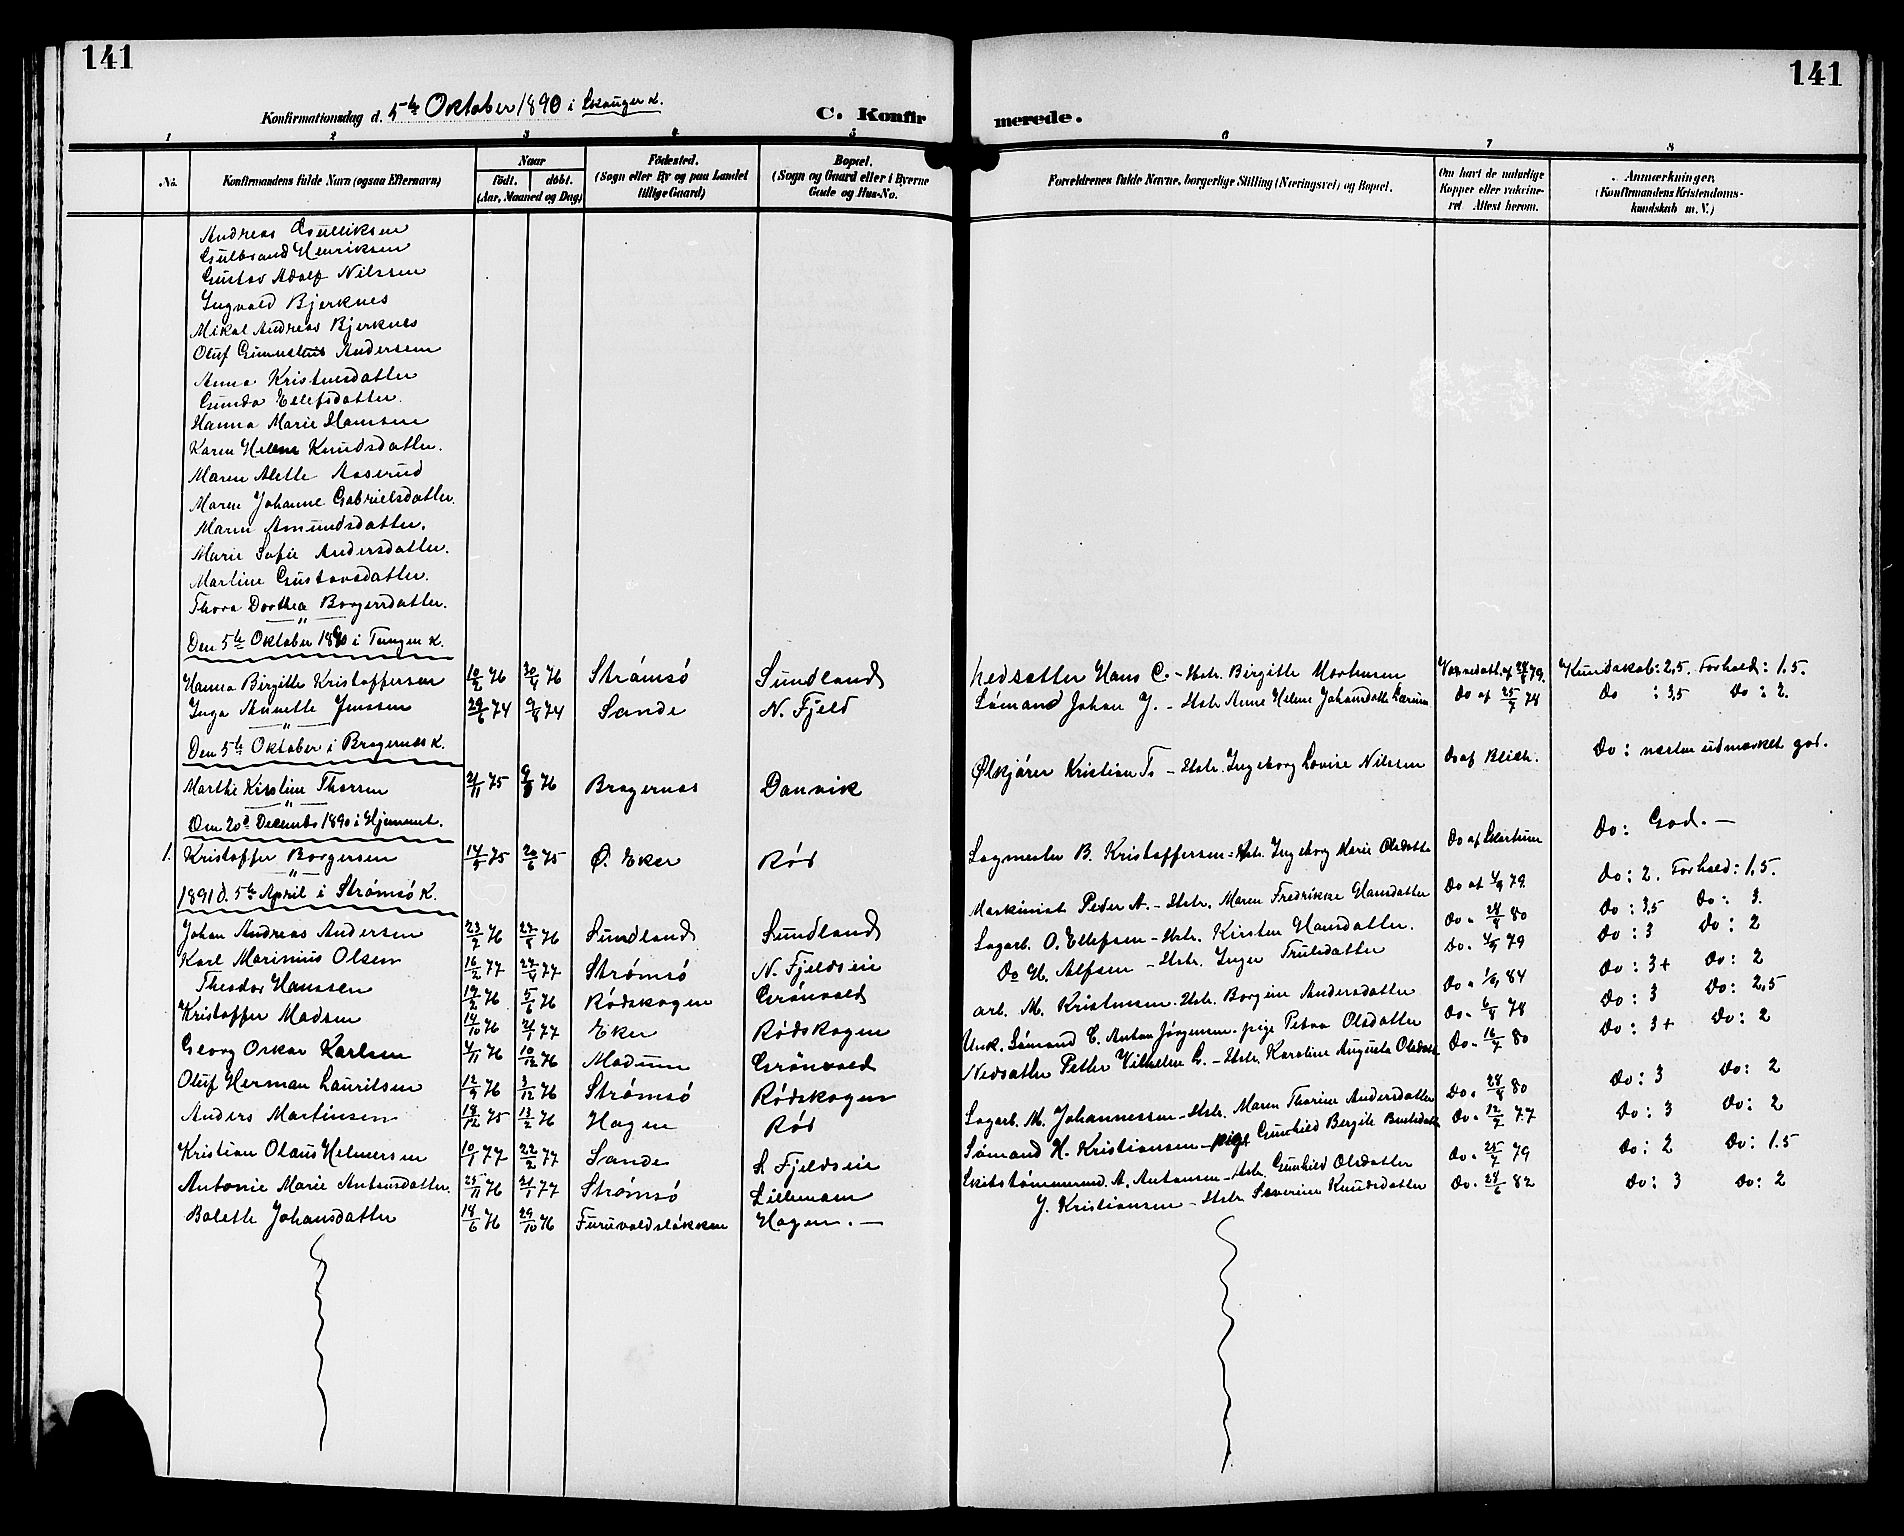 141
141
Konfirmationsdag d. 5te Oktober 1890 i Skouger K.
C. Konfir
merede.
1 2 3 4 5 6 7 8
No.
Konfirmandens fulde Navn (ogsaa Efternavn)
Naar
födt. döbt.
(Aar, Maaned og Dag)
Födested.
(Sogn eller By og paa Landet
tillige Gaard)
Bopæl.
(Sogn og Gaard eller i Byerne
Gade og Hus-No.
Forældrenes fulde Navne, borgerlige Stilling (Næringsvei) og Bopæl.
Om havt de naturlige
Kopper eller vakcine-
ret Attest herom.
Anmærkninger,
(Konfirmandens Kristendoms-
kundskab m. V.)
Andreas Gulliksen
Gulbrand Henriksen
Gustav Adolf Nilssen
Ingvald Bjerknes
Mikal Andreas Bjerknes
Oluf Andersen
Anna Kristensdatter
Gunda Ellefsdatter.
Hanna Marie Hansen
Karen Helene Knudsdatter.
Maren Alette Aaserud
Maren Johanne Gabrielsdatter.
Maren Amundsdatter.
Marie Sofie Andersdatter.
Martine Gustavsdatter.
Thora Dorthea Borgersdatter.
Den 5te Oktober 1890 i Tangen K.
Hanna Birgitte Kristoffersen 10/2 76 30/4 76 Strömsö Sundland Nedsætter Hans C. - Hstr. Birgitte Vaxnedatt. af 28/8 79. Kundskab: 2,5. Forhold: 1.5.
Inga Annette Jenssen 29/6 74 9/8 74 Sande N. Fjeld Sömand Johan J. - Hstr Anne Helene Johansdatter Do af 25/7 78 Do : 3,5 Do : 2.
Den 5te Oktober i Bragernæs K.
Marthe Kirstine Thorsen 21/11 75 76 Bragernæs Danvik Ølkjörer Kristian T. - Hstr. Ingeborg Lovise Nilssen Do af Blich. Do : næsten udmærket god.
Den 20de Decembr 1890 i Hjemmet.
1. Kristoffer Borgersen 14/5 75 20/6 75 Ø. Eker Röd Sagmester B. Kristoffersen - Hstr. Ingeborg Marie Olsdatter Do af Do : God. -
1891 d. 5te April i Strömsö K.
Johan Andreas Andersen 23/2 76 27/8 76 Sundland Sundland Maskinist Peder A. - Hstr. Maren Fredrikke Hansdatter Do af 4/9 79. Do : 2. Forhold: 1,5.
Karl Marinius Olsen 16/2 77 22/4 77 Strömsö N. Fjeldseie Sagarb. O. Ellefsen - Hstr. Kirsten Hansdatter. Do " 28/8 80 Do : 3,5 Do : 3.
Theodor Hanssen 19/2 76 5/6 76 Rödskogen Grönvold Do H. Alfsen - Hstr. Inger Trulsdatter Do " 4/9 79 Do : 3 Do : 2
Kristoffer Madsen 14/10 76 2/4 77 Eker Rödskogen arb. M. Kristensen - Hstr. Borgine Andersdatter Do " 1/9 84 Do : 3+ Do : 2
Georg Oskar Karlsen 4/11 76 10/12 76 Modum Grönvold Unk. Sömand C. Anton Jörgensen - pige Petra Olsdatter Do " 6/8 78 Do : 3 Do : 2,5
Oluf Herman Lauritsen 12/9 76 3/12 76 Strömsö Rödskogen Nedsætter Petter Vilhelm L. - Hstr. Karoline Augusta Olsdatter Do " 16/7 80 Do : 3+ Do : 2
Anders Martinsen 18/12 75 13/2 76 Hagen Röd Sagarb. M. Johannessen - Hstr. Maren Thorine Andersdatter Do " 28/8 80 Do : 3 Do : 2
Kristian Olaus Helmersen 10/1 77 22/2 77 Sande S. Fjeldseie Sömand H. Kristiansen - pige Gunhild Bergite Do " 12/7 77 Do : 3 Do : 2
Antonie Marie Antonsdatter. 25/11 76 21/1 77 Strömsö Lillemoen Skibstömmermd. A. Antonsen - Hstr. Gunhild Olsdatter Do " 25/7 79 Do : 2 Do : 1.5
Bolette Johansdatter 18/6 76 29/10 76 Furuvoldslökken Hagen. - J. Kristiansen - Hstr Severine Knudsdatter Do " 28/6 82 Do : 3 Do : 2